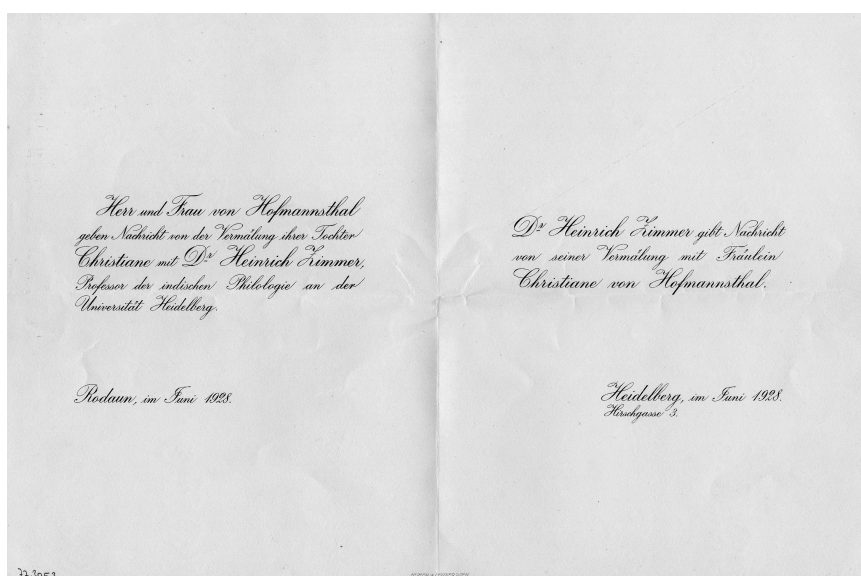 Herr und Frau von Hofmannsthal
geben Nachricht von der Vermälung ihrer Tochter
Christiane mit Dr Heinrich Zimmer,
Professor der indischen Philologie an der
Universität Heidelberg.
Rodaun, im Juni 1928.
Dr Heinrich Zimmer gibt Nachricht
von seiner Vermälung mit Fräulein
Christiane von Hofmannsthal.
Heidelberg, im Juni 1928.
Hirschgasse 3.